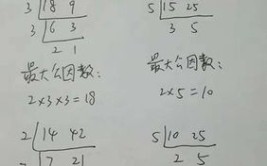 3 18 9
3 6 3
2 1
最大公因数:
2×3×3=18
2 14 42
7 21
5 15 25
3 5
最大公因数:
2×5=10
5 10 25
2 5